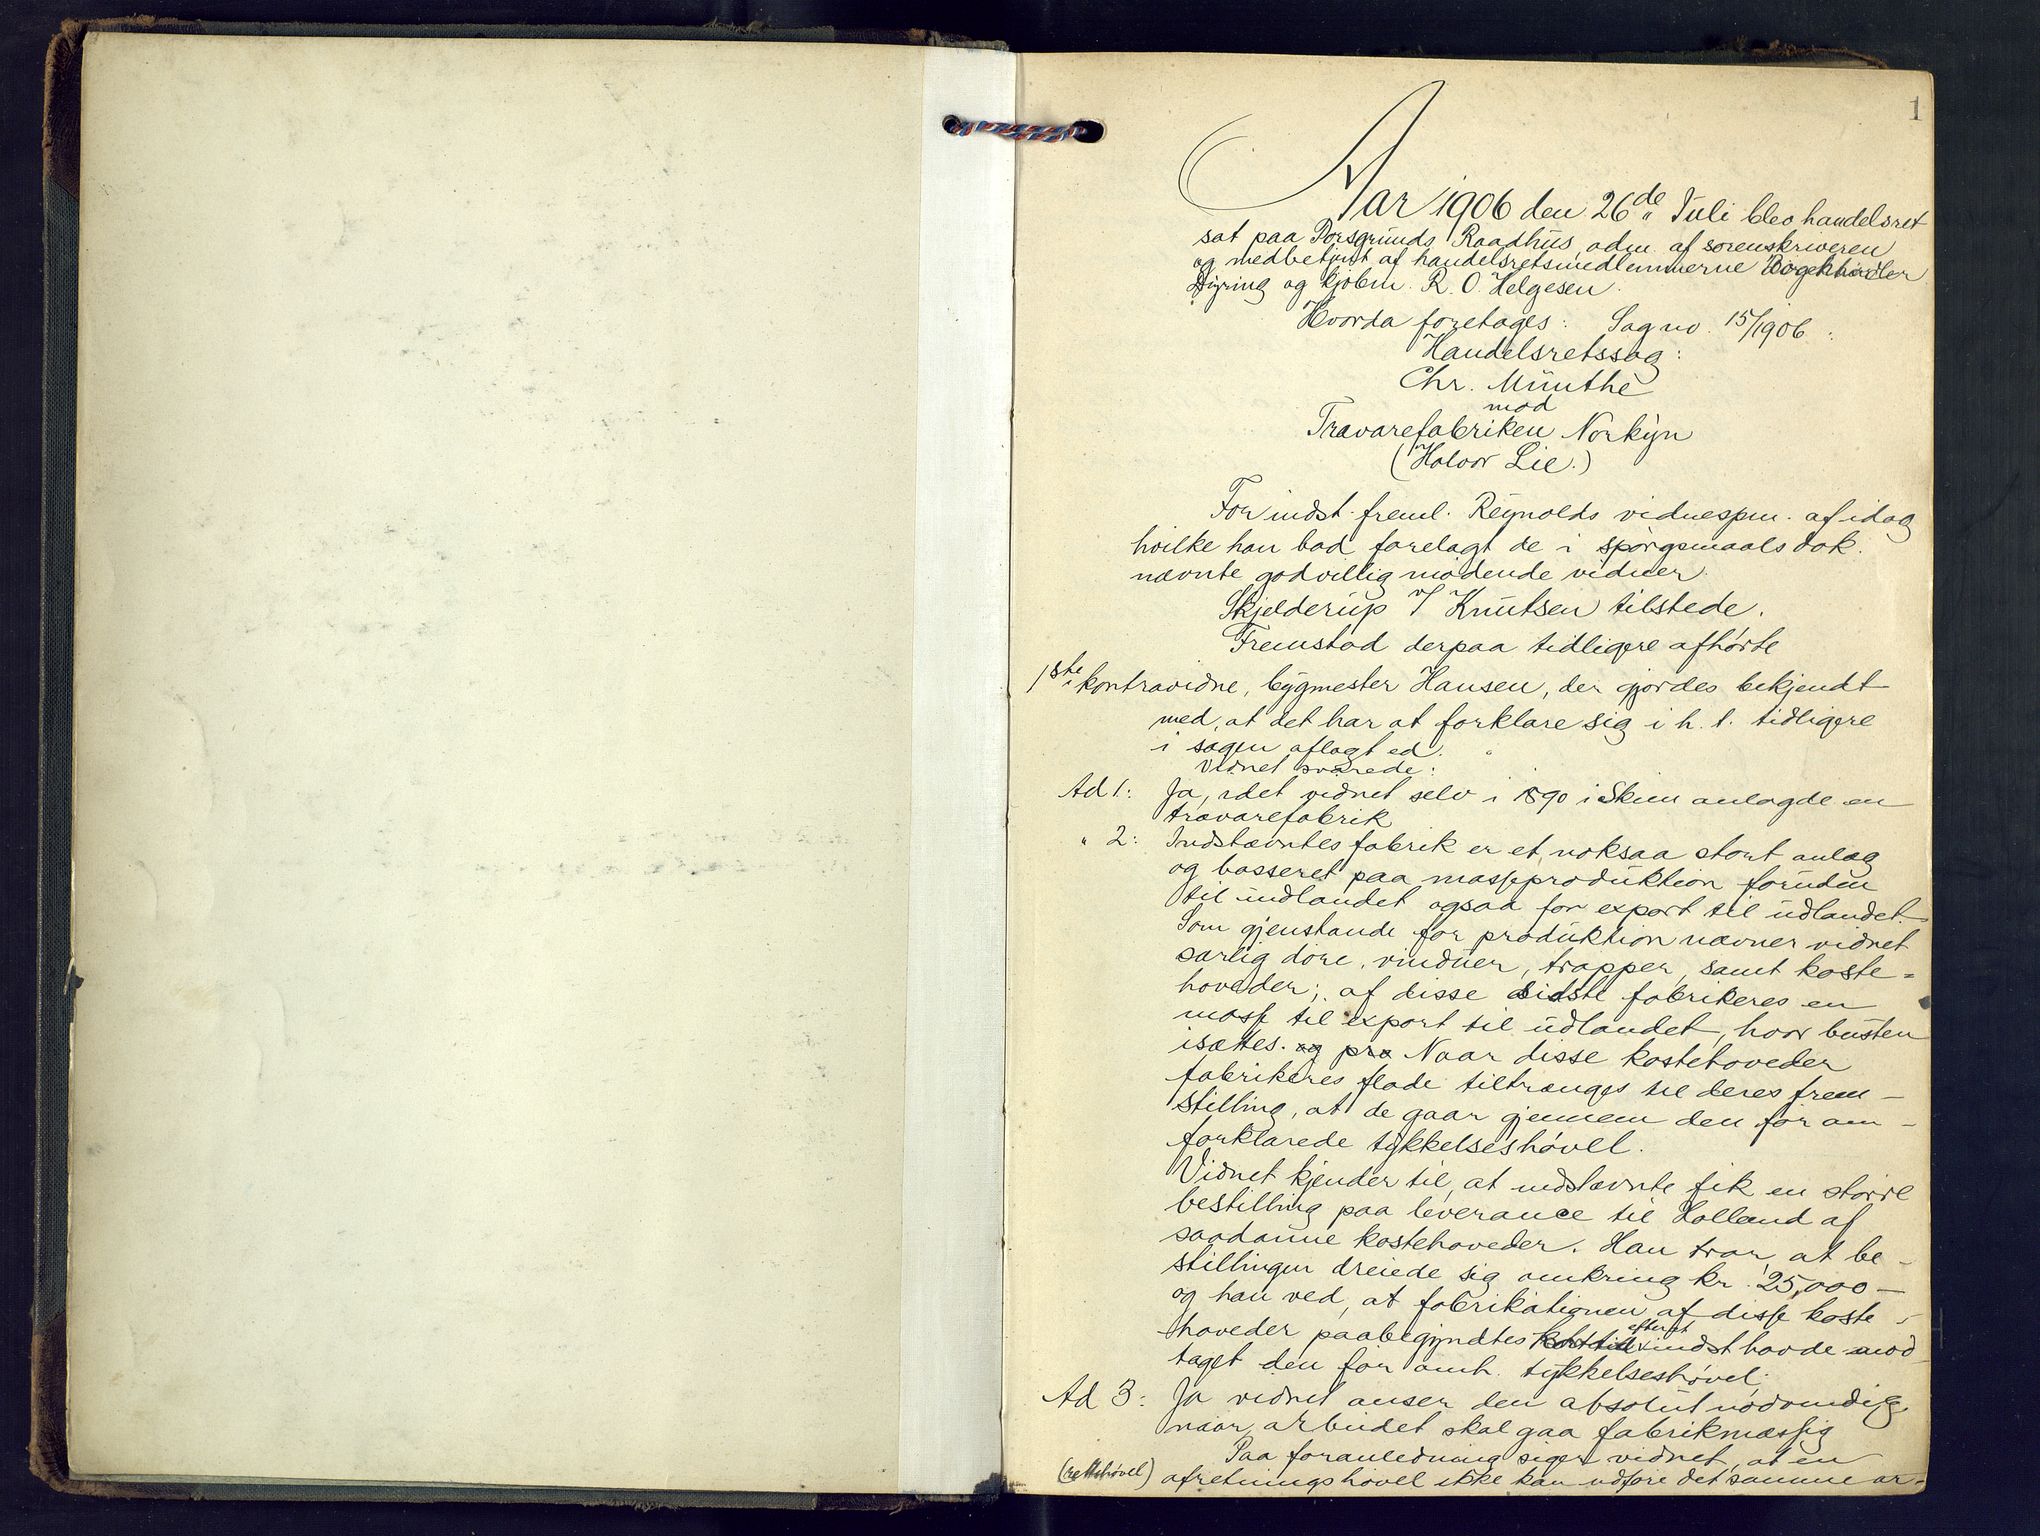 1
Aar 1906 den 26de Juli blev handelsret
sat paa Porsgrunds Raadhus, adm. af sorenskriveren
og medbetjent af handelsretsmedlemmerne
Dyring og kjøbm. R. O. Helgesen.
Hvorda foretages: Sag no. 15/1906:
Handelsretssag:
Chr. Münthe
mod
Trævarefabriken Norkyn
(Halvor Lie.)
For indst. freml. Reynolds vidnespm. af idag
hvilke han bad forelagt de i spørgsmaalsdok.
nævnte godvillig mødende vidner.
Skjelderup v/ Knutsen tilstede.
Fremstod derpaa tidligere afhørte
1ste kontravidne, bygmester Hansen, der gjordes bekjendt
med, at det har at forklare sig i h. t. tidligere
i sagen aflagt ed.
Vidnet svarede:
Ad 1: Ja, idet vidnet selv i 1890 i Skien anlagde en
trævarefabrik
" 2: Indstævntes fabrik er et noksaa stort anlæg
og basseret paa masseproduktion foruden
til indlandet ogsaa for export til udlandet.
Som gjenstande for produktion nævner vidnet
særlig døre, vinduer, trapper, samt koste=
hoveder; af disse sidste fabrikeres en
masse til export til udlandet, hvor busten
isættes. og pra Naar disse kostehoveder
fabrikeres flade tiltrænges til deres frem-
stilling, at de gaar gjennem den før om-
forklarede tykkelseshøvel.
Vidnet kjender til, at indstævnte fik en større
bestilling paa leverance til Holland af
saadanne kostehoveder. Han tror, at be-
stillingen dreiede sig omkring kr. 25,000-
og han ved, at fabrikationen af disse koste-
hoveder paabegyndtes efterat indst havde mod-
taget den før omh. tykkelseshøvel.
Ad 3: Ja vidnet anser den absolut nødvendig,
naar arbeidet skal gaa fabrikmæssig
Paa foranledning siger vidnet, at en
(rettehøvel) afretningshøvel ikke kan udføre det samme ar-